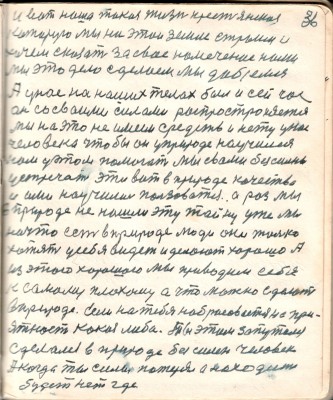 36
и вот наша такая жизнь крестьянская
которую мы на этой земле строим и
хочем сказать за свое намечение нами
мы это дело сделаем мы добьемся
А у нас на наших телах был и сейчас
он со своими силами распространяется
мы на это не имеем средств и нету у нас
человека чтобы он у природе научился
нам у этом помогать мы с вами бессильны
устречать эти вот в природе качества
и ими научились пользоватся. а раз мы
в природе не нашли эту тайну уже мы
на это есть в природе люди они только
хотят у себя видеть и делают хорошо А
из этого хорошого мы приводим себя
к самому плохому а что можно сделать
в природе. Если на тебя набросается непри-
ятность какая либо. Ты этим запутался
сделался в природе бессилен человек
А когда ты силы потерял а находить
будет негде